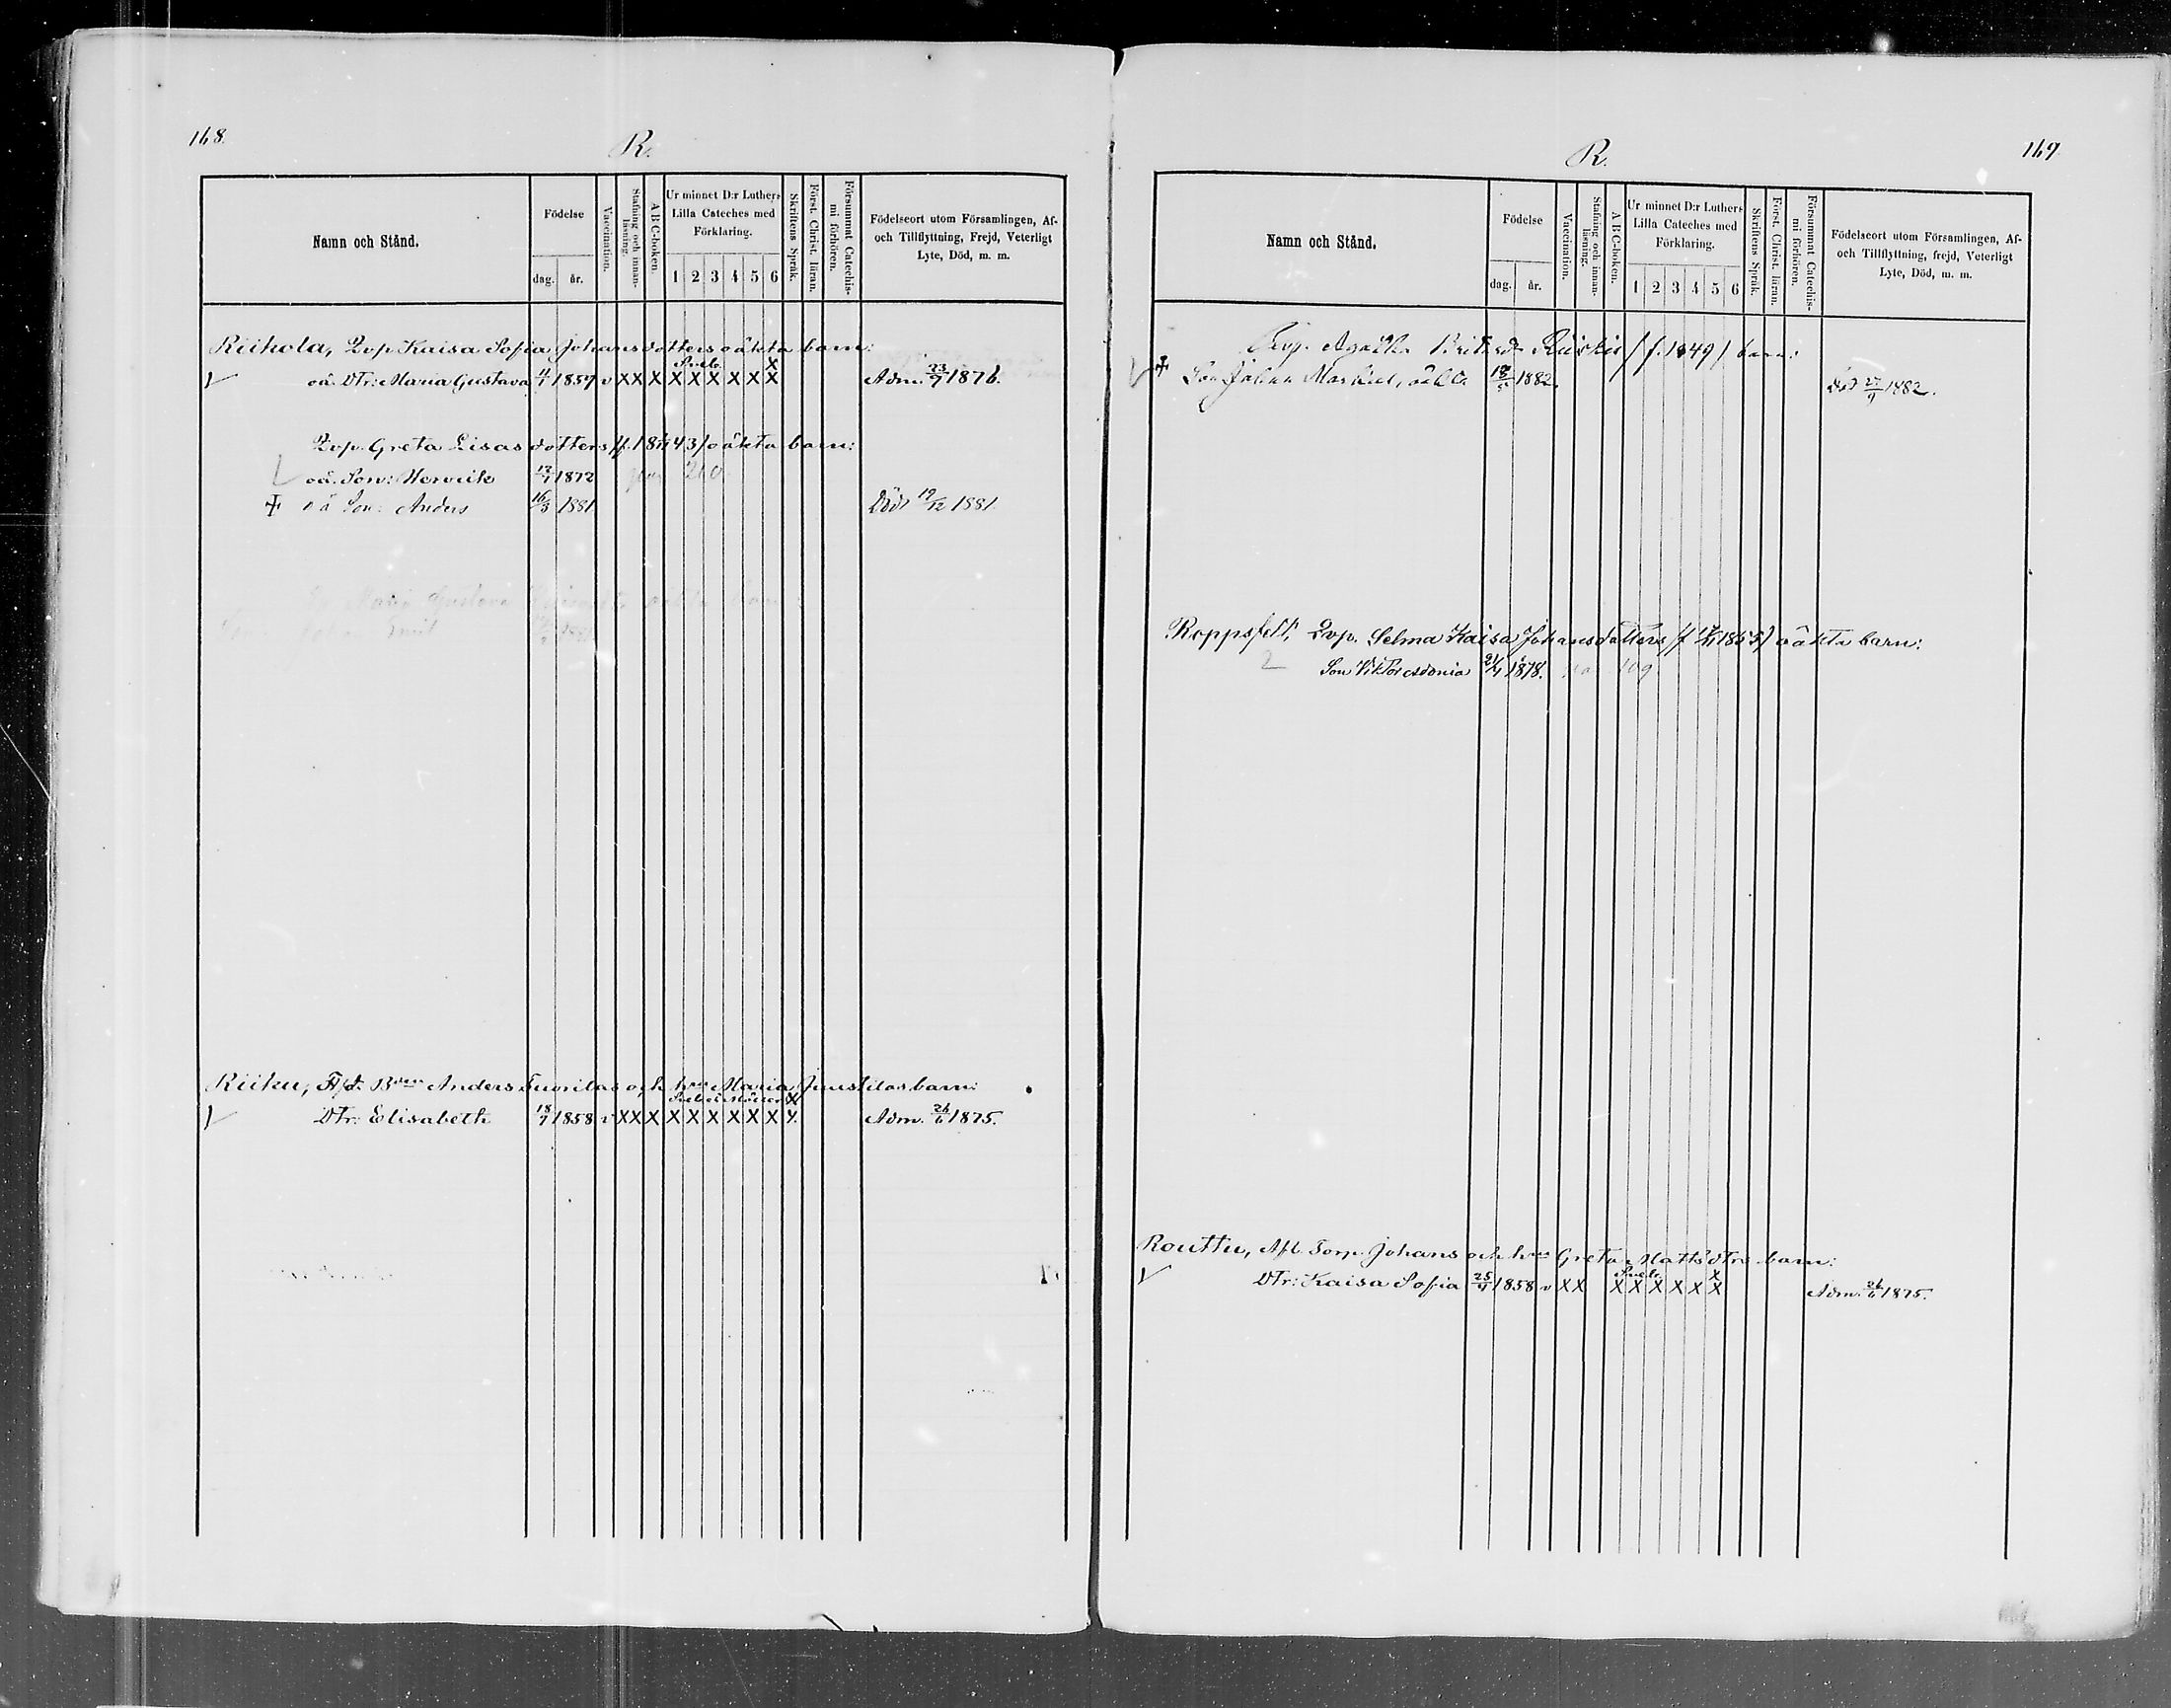 168.
R.
Namn och Stånd.
Födelse
dag. år.
Vaccination.
Stafning och innanläsning.
A B C-boken.
Ur minnet D:r Luthers Lilla Cateches med Förklaring.
1 2 3 4 5 6
Skriftens Språk.
Först. Christ. läran.
Försummat Catechismi förhören.
Födelseort utom Församlingen, Af- och Tillflyttning, Frejd, Veterligt Lyte, Död, m. m.
Riihola, Lvp Kaisa Sofia Johansdotters oäkta barn:
Sveb. X
oä. Dtr: Maria Gustava 1859 v X X X X X X X X X Adm. 23/7 1876.
Lvp. Greta Lisas dotters oäkta barn:
oä. Son: Henrik 1872 260
oä Son: Anders 16/3 1881 Död 19/12 1881
Maria Gustava
Son Johan Emil
Riiku, Afl. Anders Tuorilas och Maria barn:
X
Dtr: Elisabeth 18/7 1858 v X X X X X X X X X X Adm. 26/6 1875.
169
R.
Namn och Stånd.
Födelse
dag. år.
Vaccination.
Stafning och innanläsning.
A B C-boken.
Ur minnet D:r Luthers Lilla Cateches med Förklaring.
1 2 3 4 5 6
Skriftens Språk.
Först. Christ. läran.
Försummat Catechismi förhören.
Födelseort utom Församlingen, Af- och Tillflyttning, frejd, Veterligt Lyte, Död, m. m.
Agatha (f. 1849) barn:
Son Johan 1882. Död 27/9 1882.
Roppsfelt, Lvp. Selma Kaisa Johansdotters oäkta barn:
2 Son Viktor 1878. 109
Routtu, Afl. Torp. Johans och Greta Mattsdtrs barn:
Sveb. X
Dtr: Kaisa Sofia 25/9 1858 v X X X X X X X X Adm. 26/6 1875.